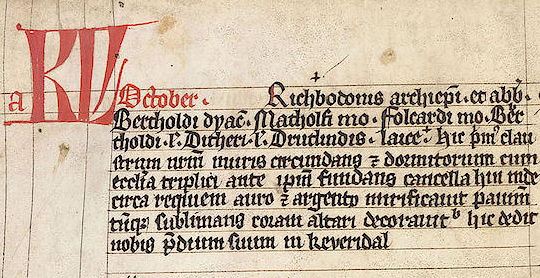 a KL October. Richbodonis archiepi. et abb.
Bertholdi dyac. Macholfi mo. Folcardi mo. Ber
tholdi. l. Dicheri. l. Drutlindis. laice. hic pmu clau
strum urm muris circundans ⁊ dormitorium cum
ecclia triplici ante ipm fundans cancella hin inde
circa requiem auro ⁊ argento mirificauit pauim
tuq sublimans coram altari decorauit hic dedit
nobis pdium suum in keveridal